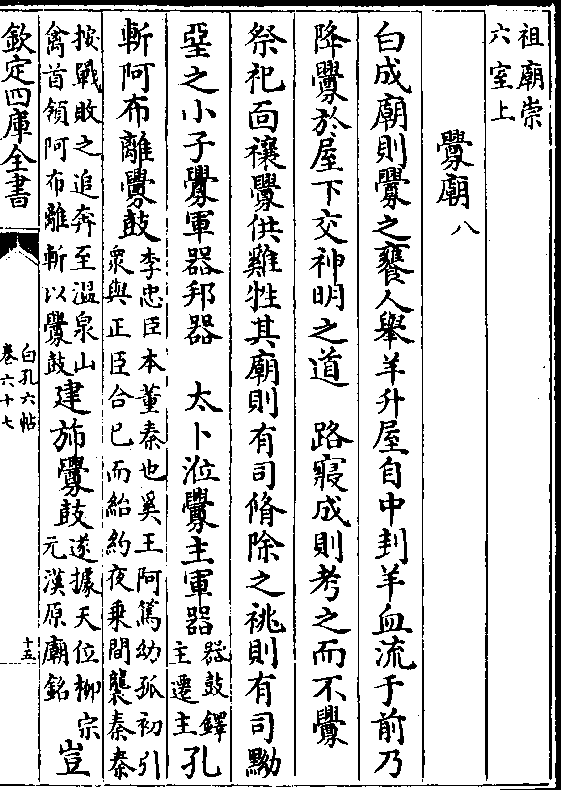 祖廟崇
六室上
釁廟 八
白成廟則釁之饔人舉羊升屋自中刲羊血流于前乃
降釁於屋下交神明之道 路寢成則考之而不釁
祭祀面禳釁供雞牲其廟則有司脩除之祧則有司黝
堊之小子釁軍器邦器 太卜涖釁主軍器 器鼓鐸主遷主 孔
斬阿布離釁鼓 李忠臣本董秦也奚王阿篤幼孤初引衆與正臣合已而紿約夜乗間襲秦秦
按戰敗之追奔至溫泉山禽首領阿布離斬以釁鼓 建斾釁鼓 遂據天位柳宗元漢原廟銘 豈
欽定四庫全書
白孔六帖
卷六十七
十五